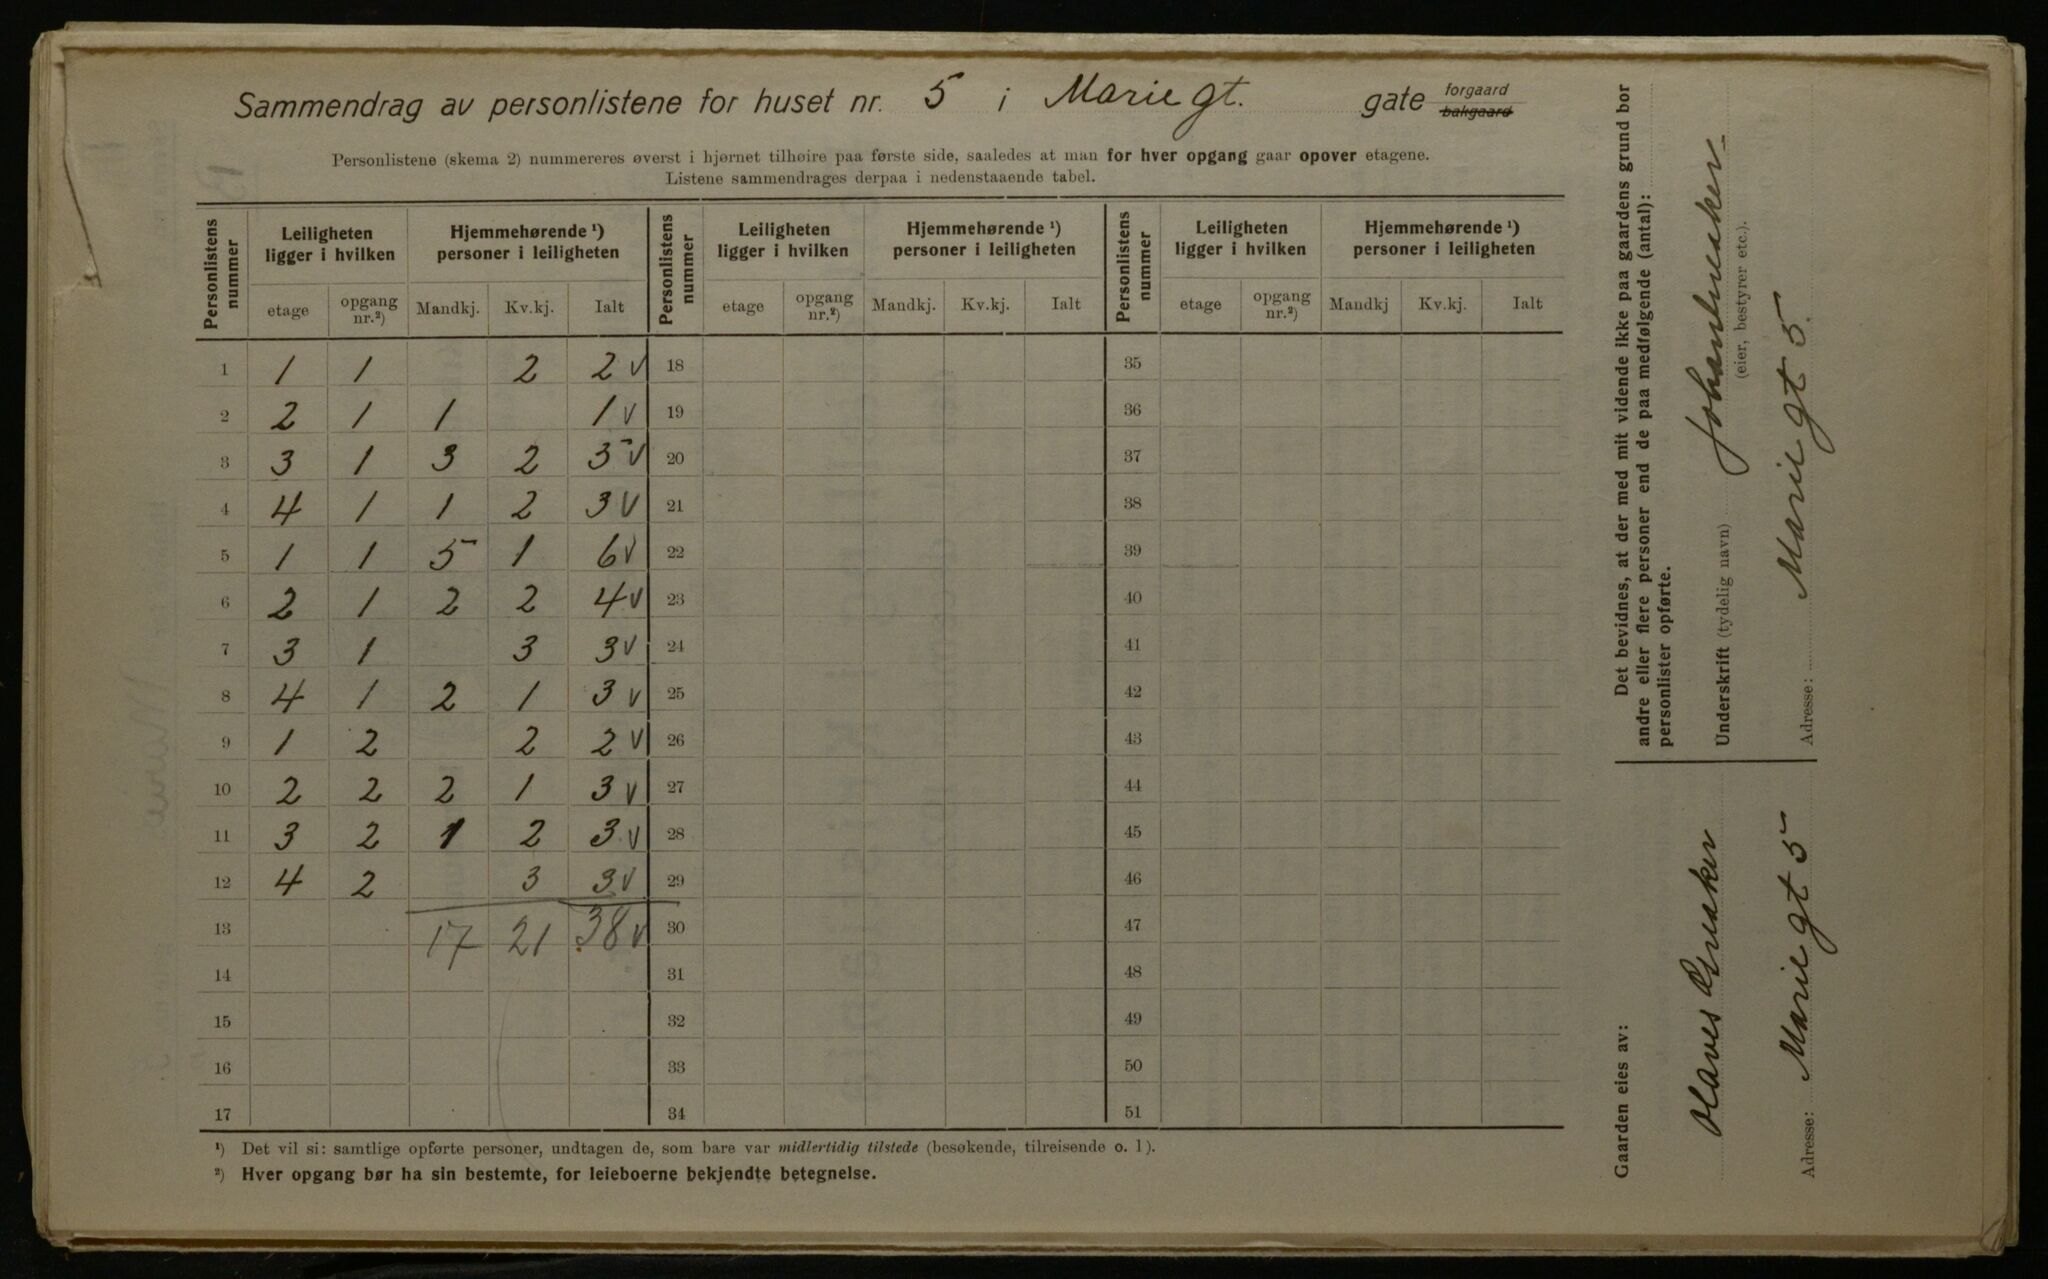 Sammendrag av personlistene for huset nr. 5 i Marie gt. gate forgaard bakgaard
Personlistene (skema 2) nummereres øverst i hjørnet tilhøire paa første side, saaledes at man for hver opgang gaar opover etagene.
Listene sammendrages derpaa i nedenstaaende tabel.
Personlistens nummer | Leiligheten ligger i hvilken | Hjemmehørende ¹) personer i leiligheten | Personlistens nummer | Leiligheten ligger i hvilken | Hjemmehørende ¹) personer i leiligheten | Personlistens nummer | Leiligheten ligger i hvilken | Hjemmehørende ¹) personer i leiligheten
etage | opgang nr.²) | Mandkj. | Kv.kj. | Ialt | etage | opgang nr.²) | Mandkj. | Kv.kj. | Ialt | etage | opgang nr.²) | Mandkj | Kv.kj. | Ialt
1 | 1 | 1 | | 2 | 2 V | 18 | 35
2 | 2 | 1 | 1 | | 1 V | 19 | 36
3 | 3 | 1 | 3 | 2 | 5 V | 20 | 37
4 | 4 | 1 | 1 | 2 | 3 V | 21 | 38
5 | 1 | 1 | 5 | 1 | 6 V | 22 | 39
6 | 2 | 1 | 2 | 2 | 4 V | 23 | 40
7 | 3 | 1 | | 3 | 3 V | 24 | 41
8 | 4 | 1 | 2 | 1 | 3 V | 25 | 42
9 | 1 | 2 | | 2 | 2 V | 26 | 43
10 | 2 | 2 | 2 | 1 | 3 V | 27 | 44
11 | 3 | 2 | 1 | 2 | 3 V | 28 | 45
12 | 4 | 2 | | 3 | 3 V | 29 | 46
13 | | | 17 | 21 | 38 V | 30 | 47
14 | 31 | 48
15 | 32 | 49
16 | 33 | 50
17 | 34 | 51
¹) Det vil si: samtlige opførte personer, undtagen de, som bare var midlertidig tilstede (besøkende, tilreisende o. l).
²) Hver opgang bør ha sin bestemte, for leieboerne bekjendte betegnelse.
Det bevidnes, at der med mit vidende ikke paa gaardens grund bor
andre eller flere personer end de paa medfølgende (antal):
personlister opførte.
Underskrift (tydelig navn)
(eier, bestyrer etc.).
Adresse: Marie gt 5.
Gaarden eies av:
Olaves
Adresse: Marie gt 5